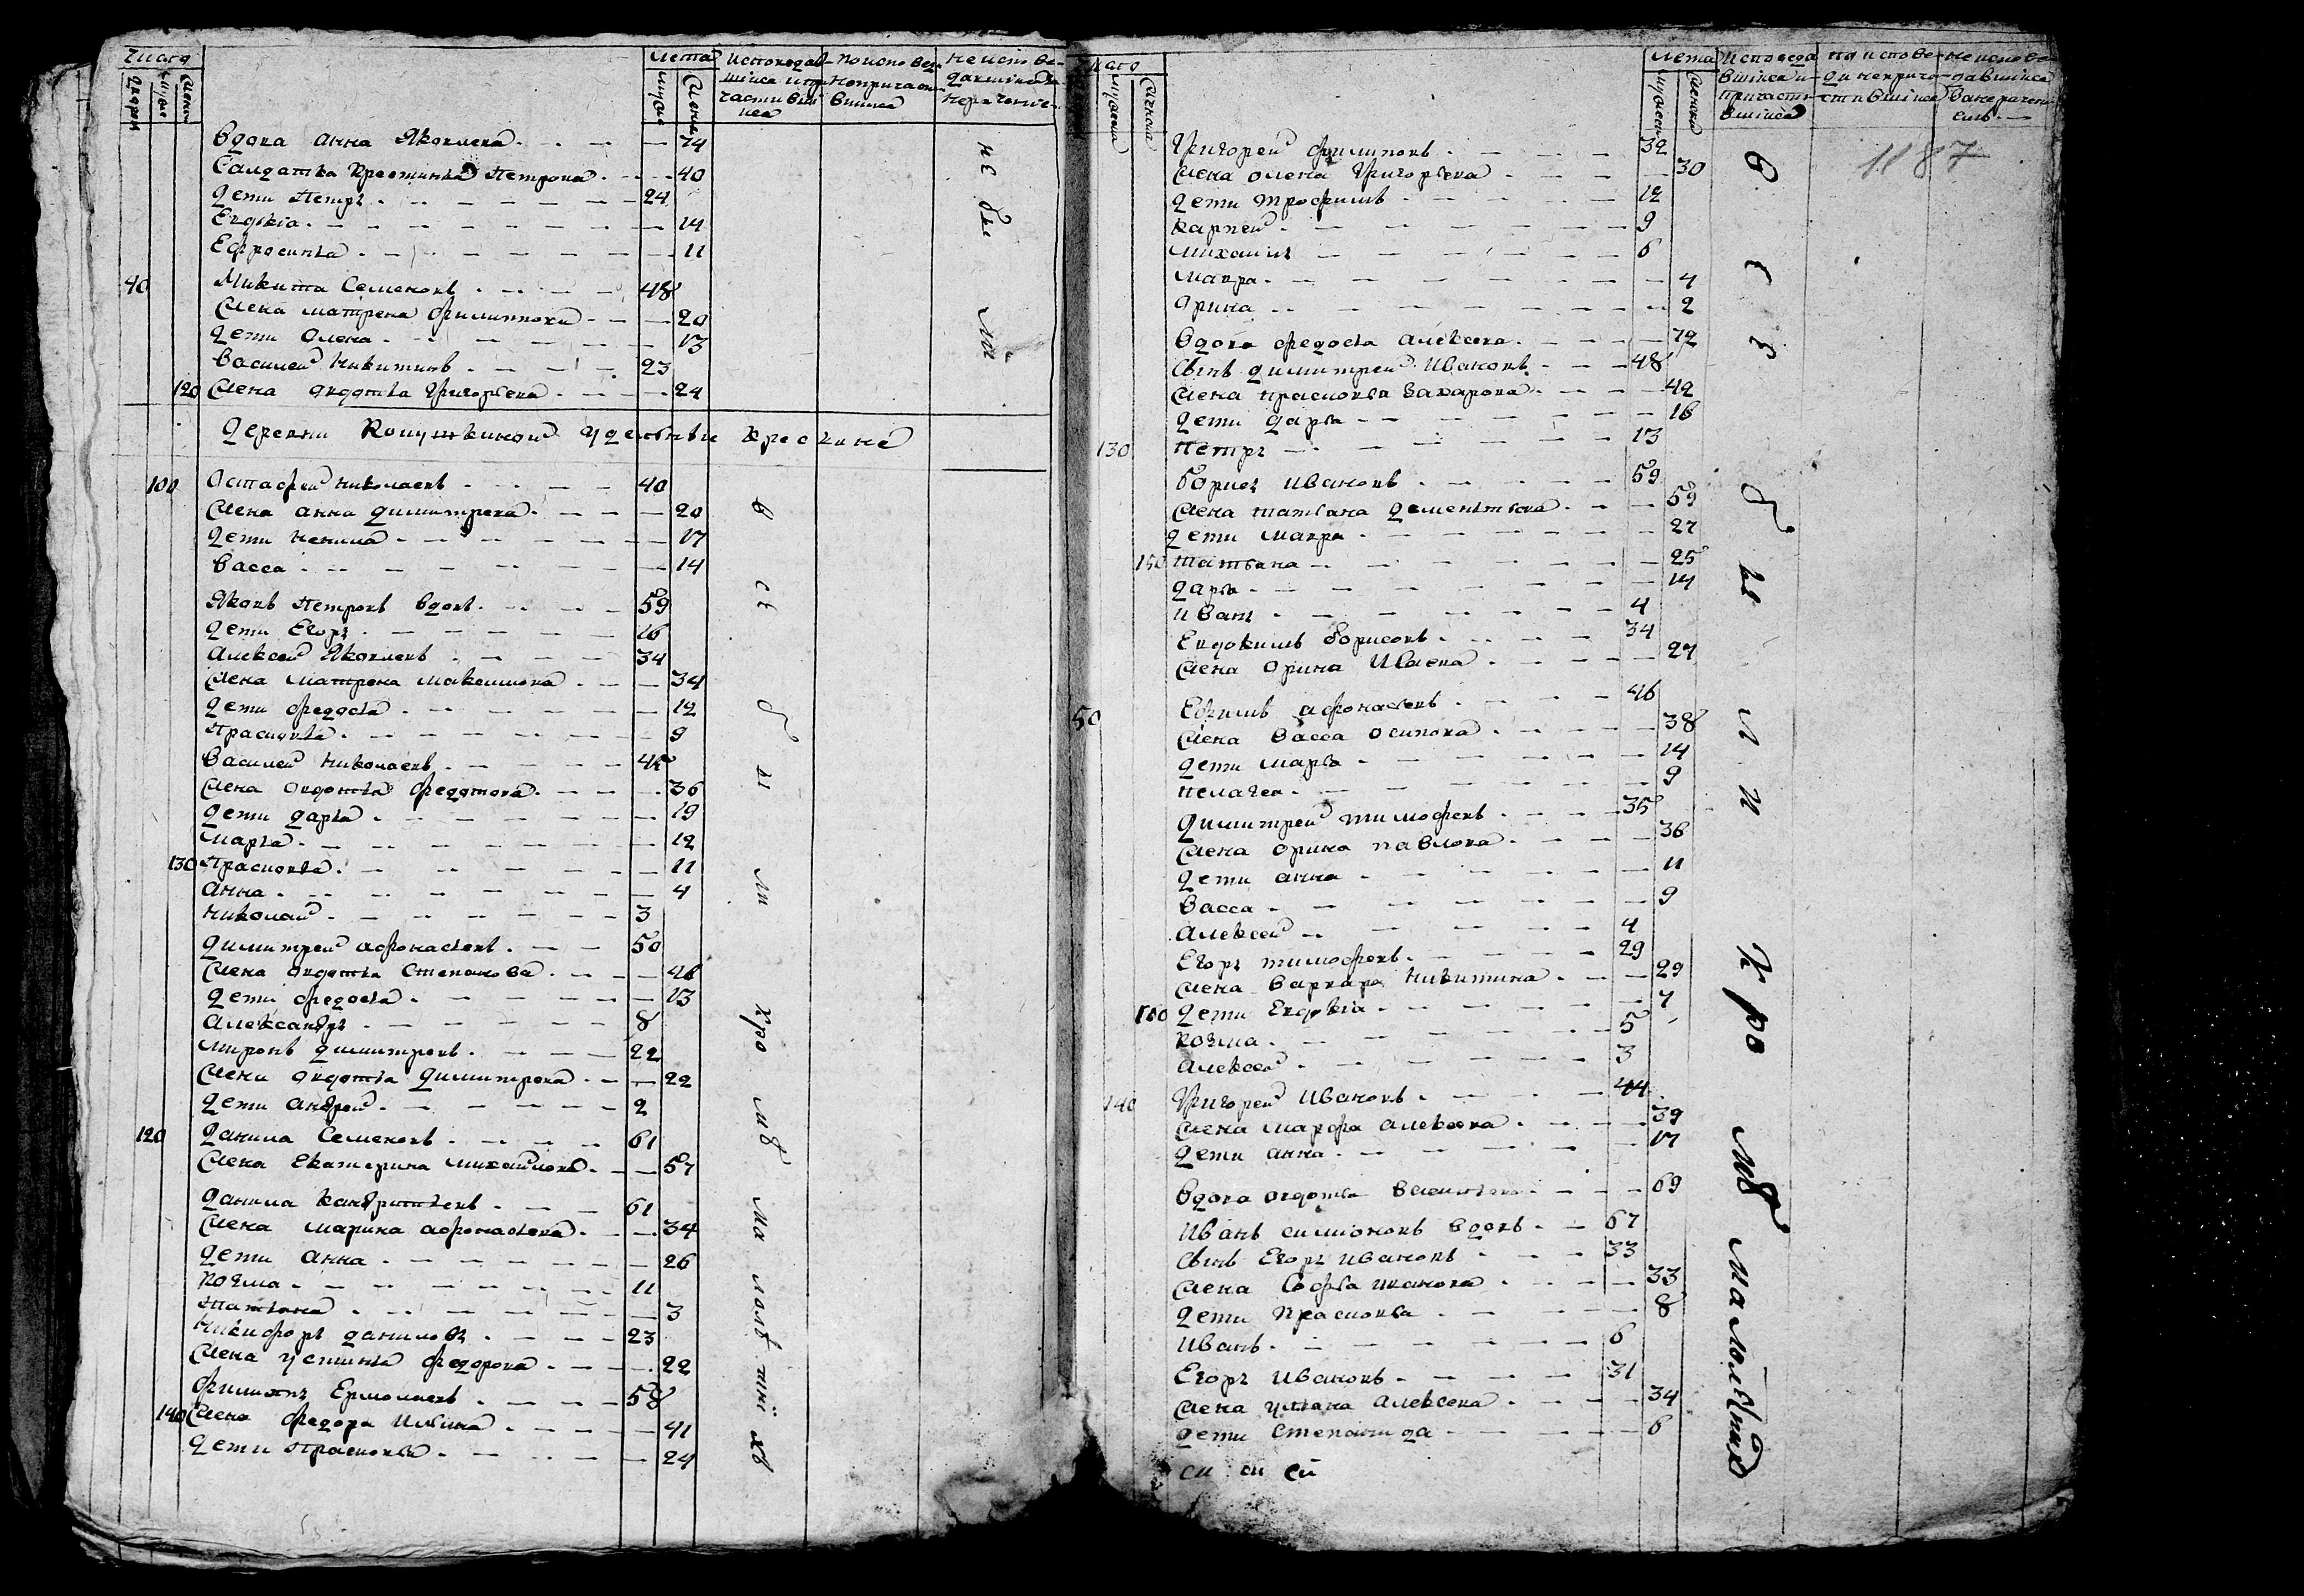 Число
дворов
мужеска
женска
лета
мужес
женск
исповедав-
шихся и при
частивши
хся
по испове-
ди неприча
вшихся
не испове-
давшихся за
нерачение
Вдова Анна Яковлева 74
Салдатка Крестинья Петрова 40
дети Петръ 24
Евдокіа 14
Ефросинья 11
40 Микита Семеновъ 48
жена Матрена Филиппова 20
дети Олена 13
Василей Никитинъ 23
120 жена Овдотья Григорьева 24
не были
деревни удельные крестьяне
100 Остафей Николаевъ 40
жена Анна Димитрева 20
дети Ненила 17
Васса 14
Яковъ Петровъ вдовъ 59
дети Егоръ 16
Алексей Яковлевъ 34
жена Матрена Максимова 34
дети Федосья 12
Прасковья 9
Василей Николаевъ 42
жена Овдотья Федотова 36
дети Дарья 19
Марья 12
130 Прасковья 11
Анна 4
Николай 3
Димитрей Афонасьевъ 50
жена Овдотья Степанова 46
дети Федосья 13
Александръ 8
Миронъ Димитревъ 22
жена Овдотья Димитрева 22
дети Андрей 2
120 Данила Семеновъ 61
жена Екатерина Михайлова 57
Данила Кандратьевъ 61
жена Марина Афонасьева 34
дети Анна 26
Козма 11
Татьяна 3
Никифоръ Даниловъ 23
жена Устинья Федорова 22
Филиппъ Ермолаевъ 58
140 жена Федора Ильина 41
дети Прасковья 24
все были кроме малолетнихъ
Число
мужеска
женска
лета
мужеск
женска
исповеда
вшихся и
причасти
вшихся
по испове-
ди неприча-
стившихся
не испове-
давшихся
за нерачени
емъ
1187
Григорей Филиповъ 32
жена Олена Григорьева 30
дети Трофимъ 12
Карпей 9
Михаилъ 6
Мавра 4
Орина 2
Вдова Федосья Алексева 72
сынъ Димитрей Ивановъ 48
жена Прасковья Захарова 42
дети Дарья 16
130 Петръ 13
Борисъ Ивановъ 59
жена Татьяна Дементьева 59
дети Мавра 27
150 Татьяна 25
Дарья 14
Иванъ 4
Евдокимъ Борисовъ 34
жена Орина Ивлева 27
50 Ефимъ Афонасьевъ 46
жена Васса Осипова 38
дети Марья 14
Пелагея 9
Димитрей Тимофеевъ 35
жена Орина Павлова 36
дети Анна 11
Васса 9
Алексей 4
Егоръ Тимофеевъ 29
жена Варвара Никитина 29
160 дети Евдокіа 7
Козма 5
Алексей 3
140 Григорей Ивановъ 44
жена Марфа Алексеева 39
дети Анна 17
Вдова Овдотья Васильева 69
Иванъ Симіоновъ вдовъ 67
сынъ Егоръ Ивановъ 33
жена Софья Иванова 33
дети Прасковья 8
Иванъ 6
Егоръ Ивановъ 31
жена Ульяна Алексеева 34
дети Степанида 6
все были кроме малолетних